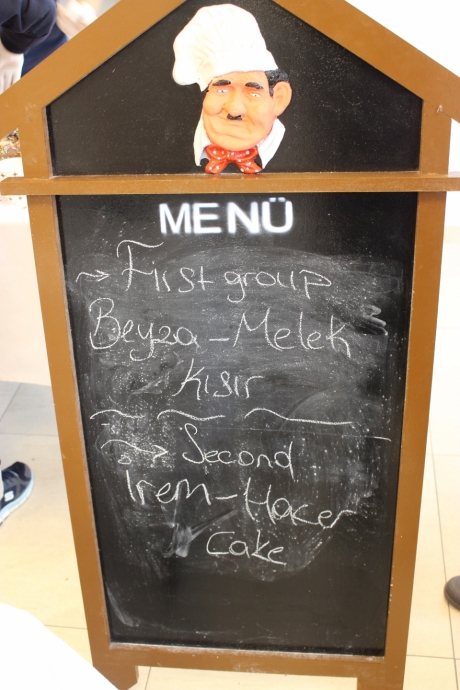 MENÜ
First group
Beyza-Melek
Kısır
Second
Irem-Hacer
Cake